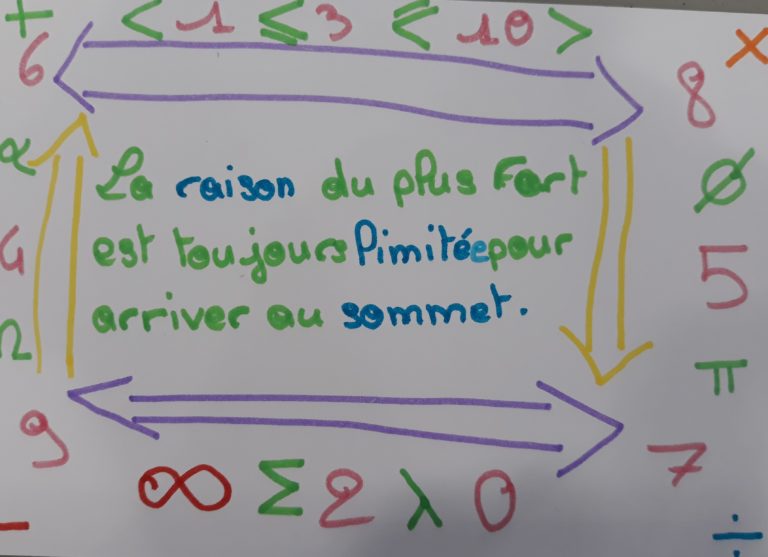 + < 1 ≤ 3 ≤ 10 > ×
6 8
α La raison du plus Fort ∅
4 est toujours limitée pour 5
Ω arriver au sommet.
π
9 7
∞ Σ 2 λ 0
− ÷